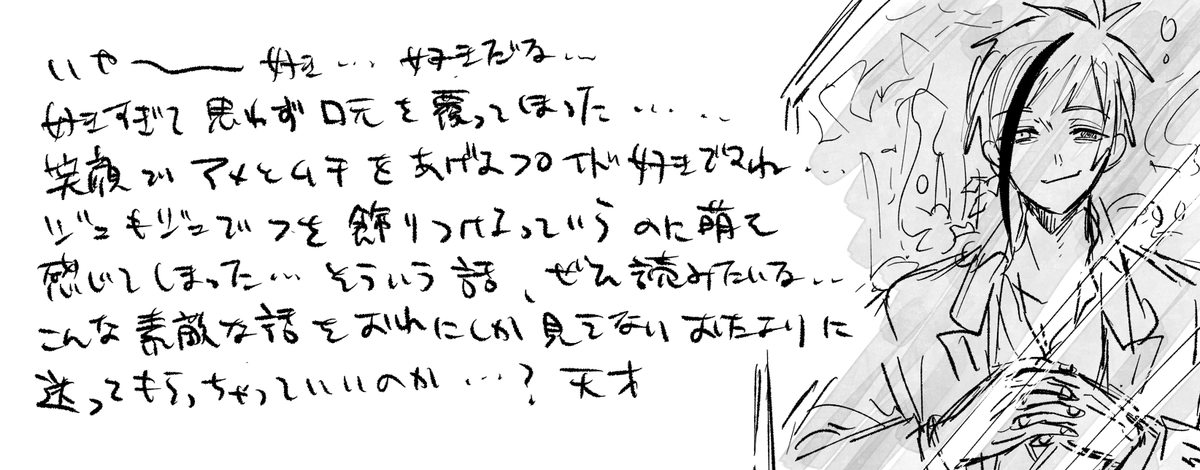 いや〜〜 好き… 好きだな…
好きすぎて思わず口元を覆ってしまった……
笑顔でアメとムチをあげるフロイドが好きですね…
飾りつけるっていうのに萌えを
感じてしまった… そういう話、ぜひ読みたいな…
こんな素敵な話をおれにしか見えないおたよりに
送ってもらっちゃっていいのか…? 天才